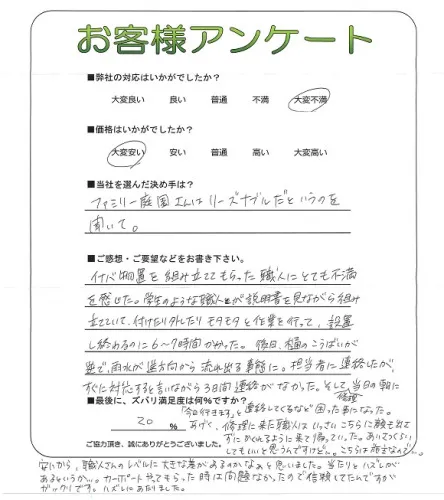 お客様アンケート
■弊社の対応はいかがでしたか?
大変良い 良い 普通 不満 大変不満
■価格はいかがでしたか?
大変安い 安い 普通 高い 大変高い
■当社を選んだ決め手は?
ファミリー庭園さんはリーズナブルだというのを
聞いて。
■ご感想・ご要望などをお書き下さい。
イナバ物置を組み立ててもらった職人にとても不満
を感じた。学生のような職人が説明書を見ながら組み
立てていて、付けたり外したりモタモタと作業を行って、設置
し終わるのに6〜7時間かかった。後日、樋のこうばいが
逆で、雨水が逆方向から流れ出る事態に。担当者に連絡したが、
すぐに対応すると言いながら3日間連絡がなかった。そして、当日の朝に
■最後に、ズバリ満足度は何%ですか?
20 %
「今日行きます」と連絡してくるなど困った事になった。
修理
あげく、修理に来た職人はいっさいこちらに顔も出さ
ずにかくれるように来て帰っていった。ありえなくらい
ご協力頂き、誠にありがとうございました。
してもいいと思うんですけど…。こちらは
安いから、職人さんのレベルに大きな差があるのかなぁと思いました。当たりとハズレが
あるというか…。カーポートやってもらった時は問題なかったので信頼してたんですが
ガックリです。ハズレにあたりました。